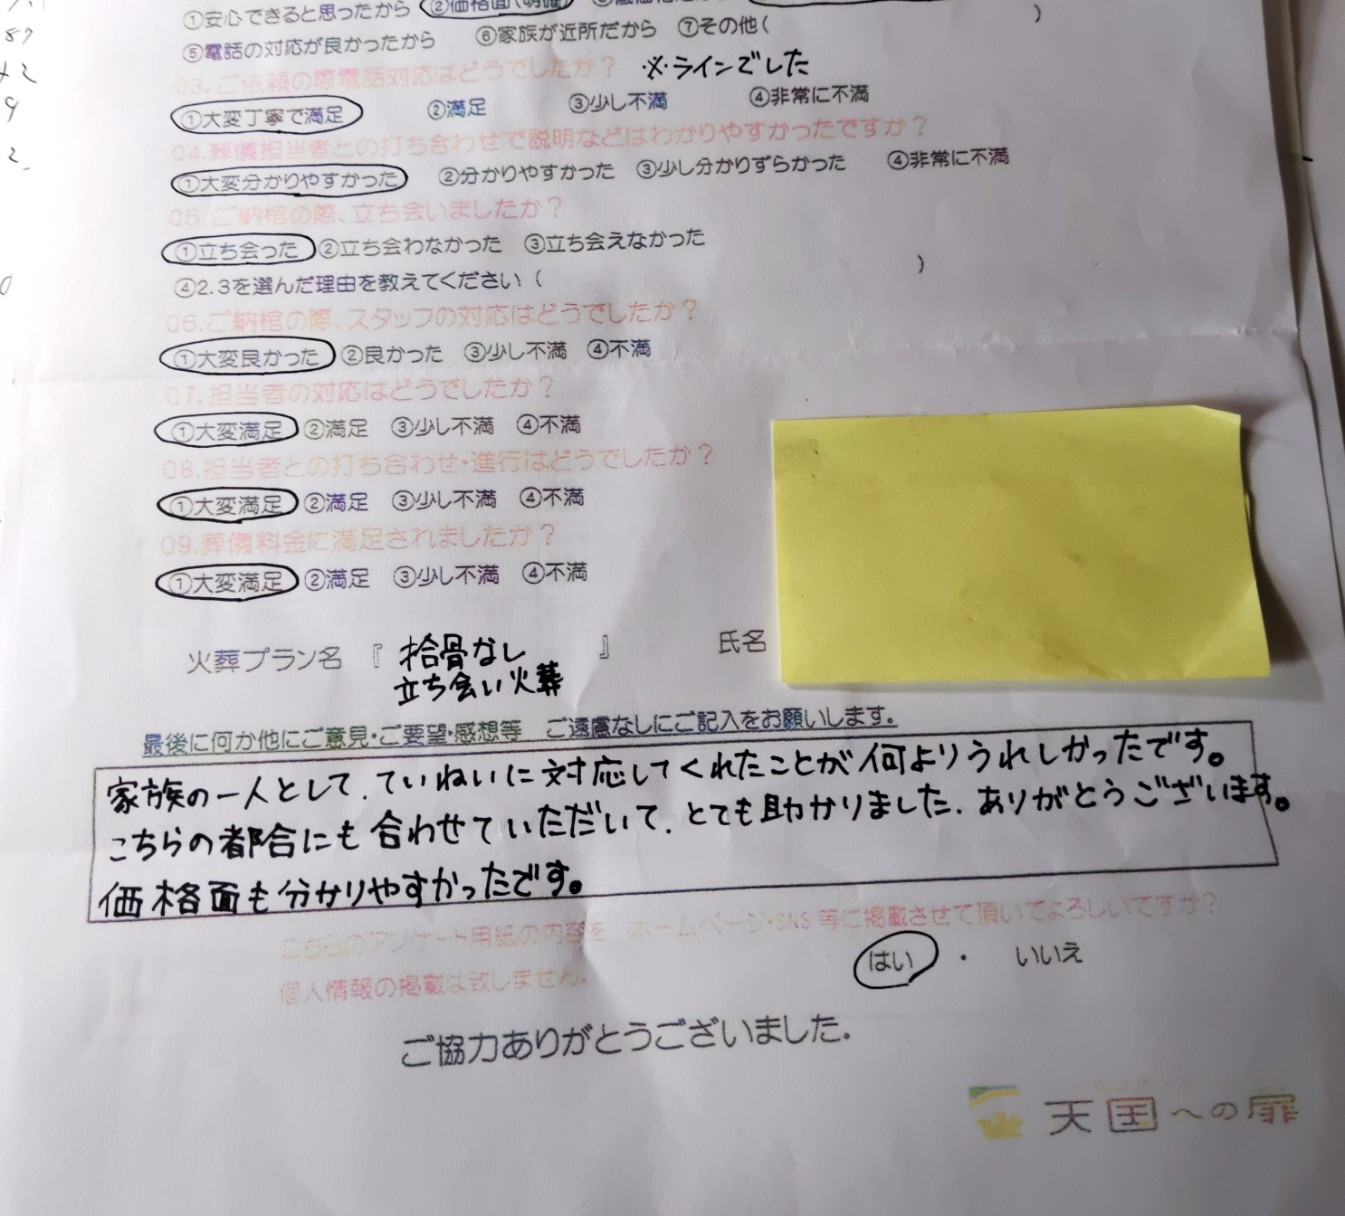 ①安心できると思ったから ②価格面(明確
⑤電話の対応が良かったから ⑥家族が近所だから ⑦その他( )
03.ご依頼の際電話対応はどうでしたか? ※ラインでした
①大変丁寧で満足 ②満足 ③少し不満 ④非常に不満
04.葬儀担当者との打ち合わせで説明などはわかりやすかったですか?
①大変分かりやすかった ②分かりやすかった ③少し分かりずらかった ④非常に不満
05.ご納棺の際、立ち会いましたか?
①立ち会った ②立ち会わなかった ③立ち会えなかった
④2.3を選んだ理由を教えてください( )
06.ご納棺の際、スタッフの対応はどうでしたか?
①大変良かった ②良かった ③少し不満 ④不満
07.担当者の対応はどうでしたか?
①大変満足 ②満足 ③少し不満 ④不満
08.担当者との打ち合わせ・進行はどうでしたか?
①大変満足 ②満足 ③少し不満 ④不満
09.葬儀料金に満足されましたか?
①大変満足 ②満足 ③少し不満 ④不満
火葬プラン名『拾骨なし 』 氏名
立ち会い火葬
最後に何か他にご意見・ご要望・感想等 ご遠慮なしにご記入をお願いします。
家族の一人として、ていねいに対応してくれたことが何よりうれしかったです。
こちらの都合にも合わせていただいて、とても助かりました。ありがとうございます。
価格面も分かりやすかったです。
こちらのアンケート用紙の内容を ホームページ・SNS等に掲載させて頂いてよろしいですか?
個人情報の掲載は致しません。 はい ・ いいえ
ご協力ありがとうございました。
天国への扉